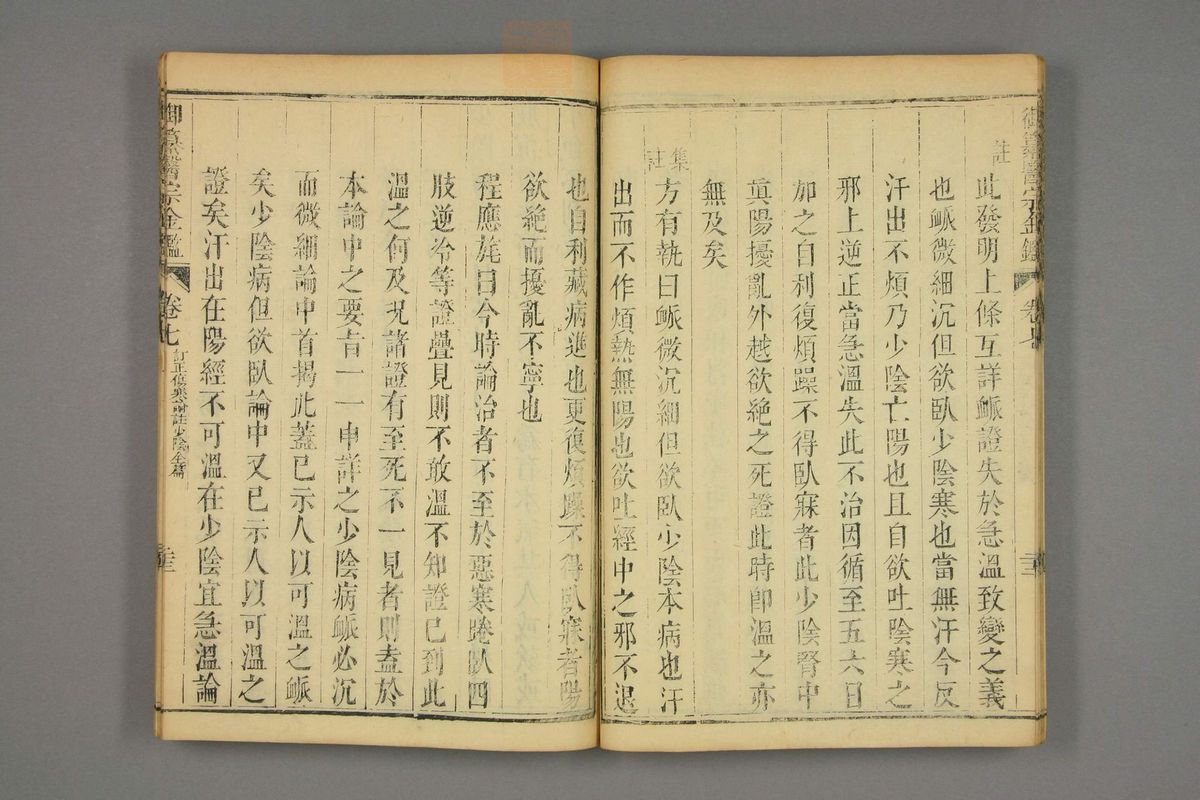 御纂醫宗金鑑 卷七
註
此發明上條互詳脈證失於急溫致變之義
也脈微細沉但欲臥少陰寒也當無汗今反
汗出不煩乃少陰亡陽也且自欲吐陰寒之
邪上逆正當急溫失此不治因循至五六日
加之自利復煩躁不得臥寐者此少陰腎中
眞陽擾亂外越欲絶之死證此時卽溫之亦
無及矣
集註
方有執曰脈微沉細但欲臥少陰本病也汗
出而不作煩熱無陽也欲吐經中之邪不退
也自利藏病進也更復煩躁不得臥寐者陽
欲絶而擾亂不寧也
程應旄曰今時論治者不至於惡寒踡臥四
肢逆冷等證疊見則不敢溫不知證已到此
溫之何及況諸證有至死不一見者則盍於
本論中之要旨一一申詳之少陰病脈必沉
而微細論中首揭此蓋已示人以可溫之脈
矣少陰病但欲臥論中又已示人以可溫之
證矣汗出在陽經不可溫在少陰宜急溫論
御纂醫宗金鑑 卷七 訂正傷寒論註少陰全篇